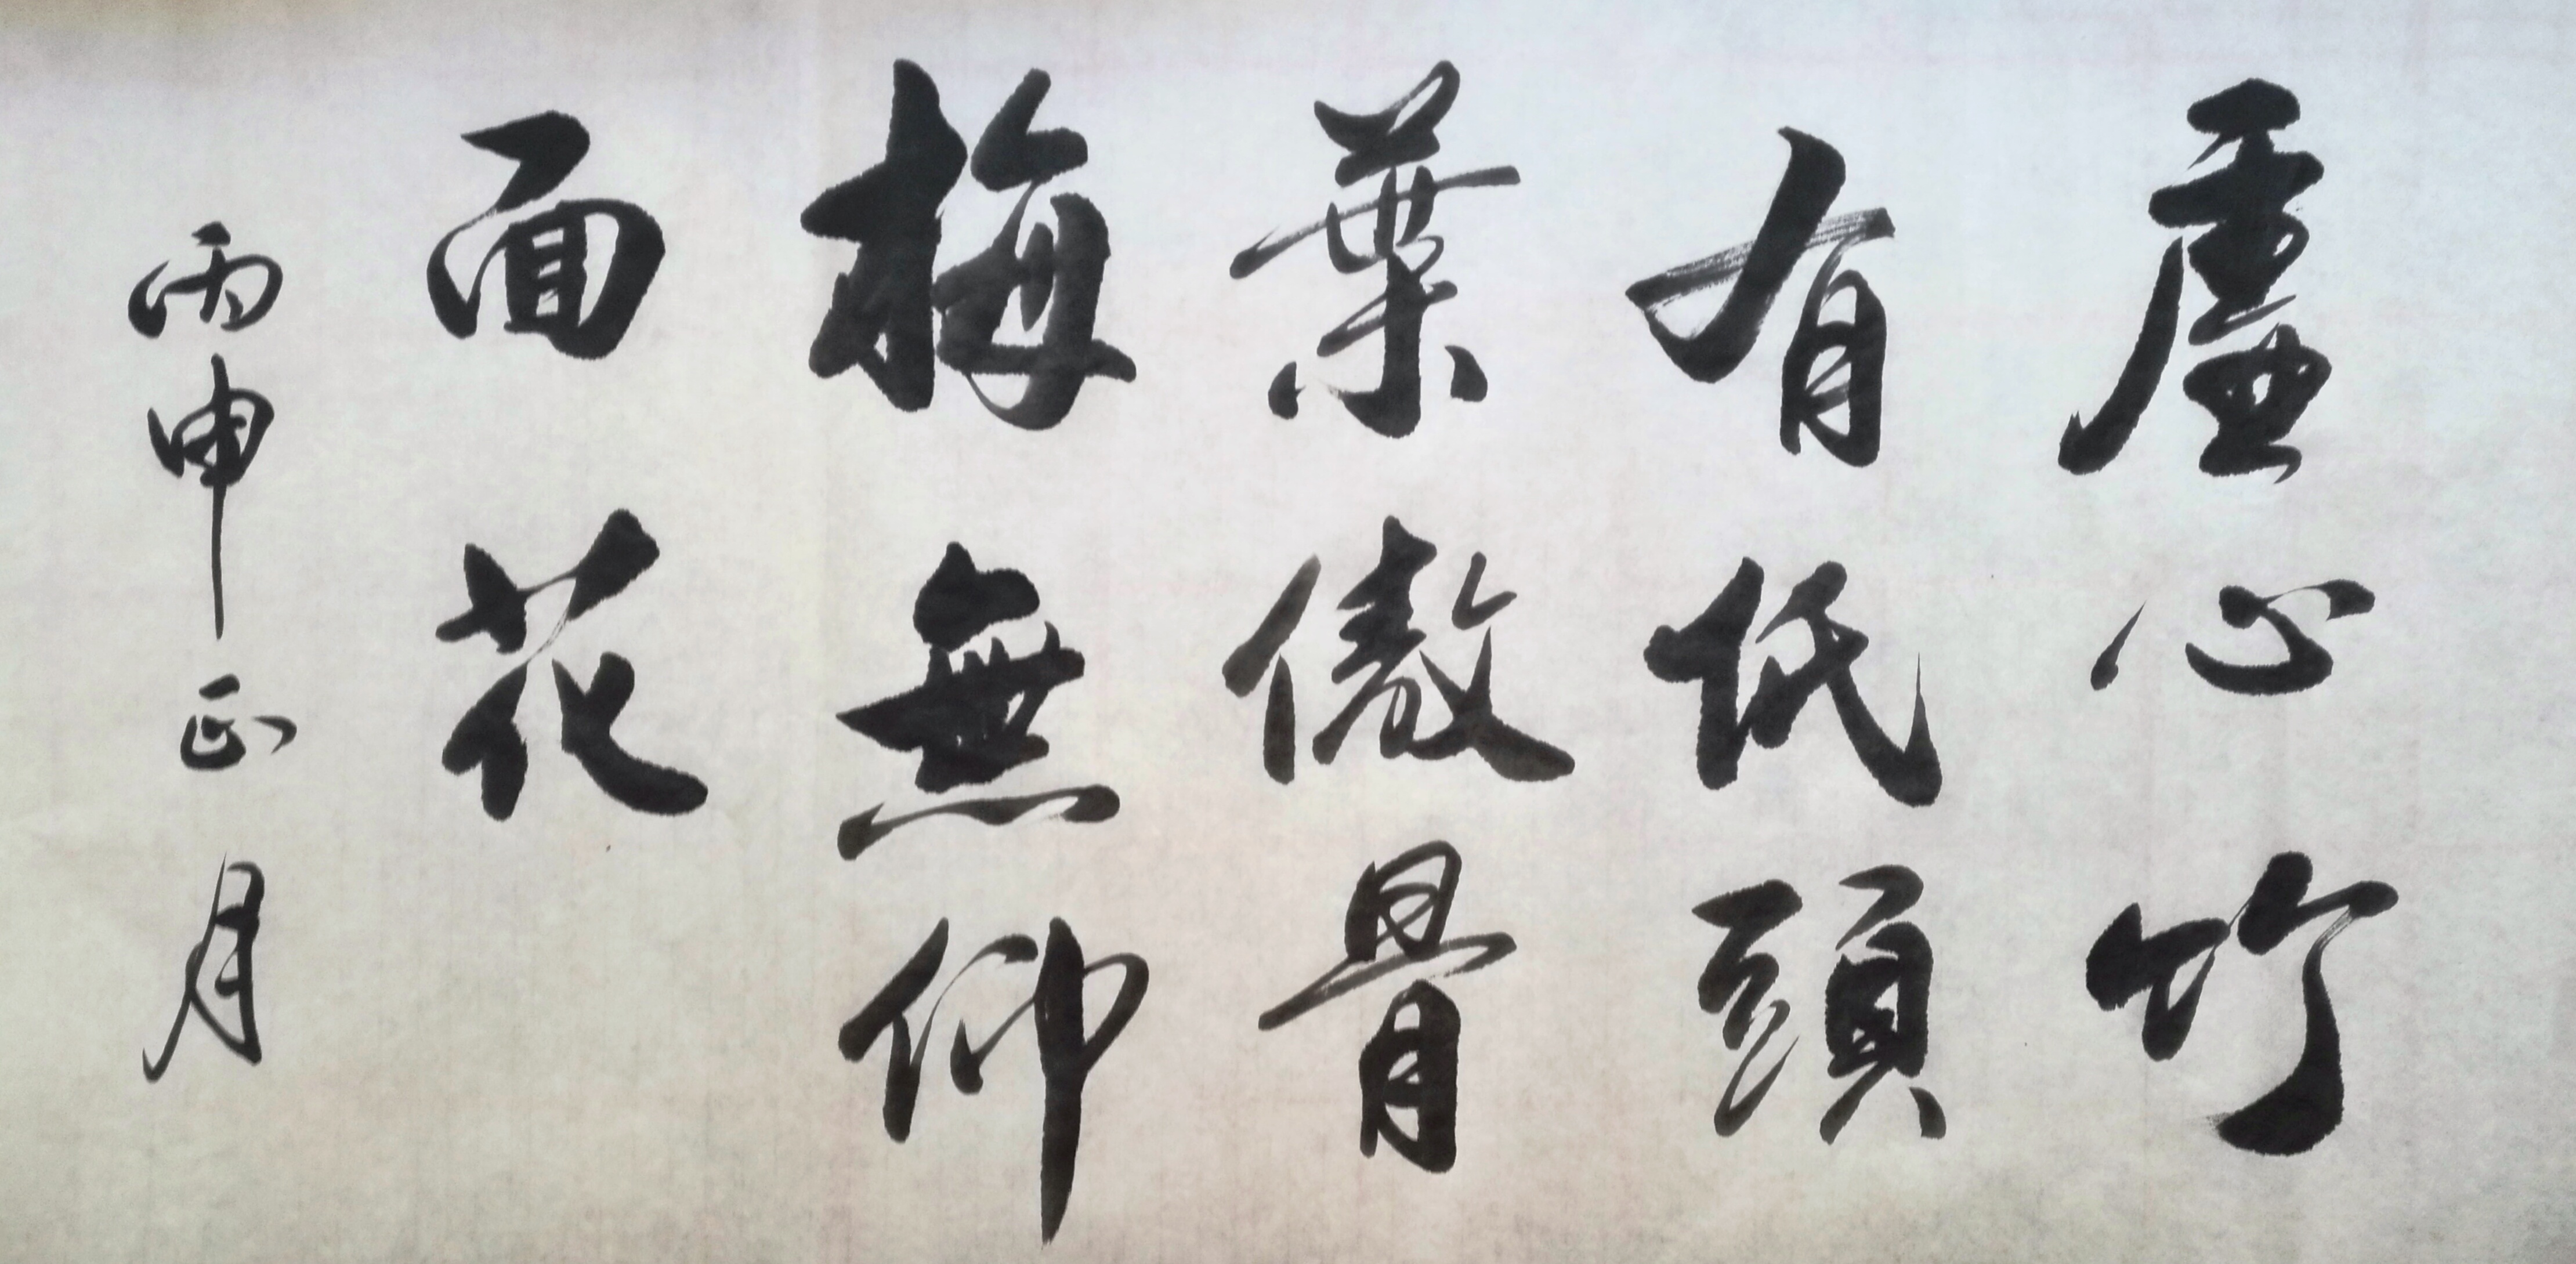 虛心竹
有低頭
葉傲骨
梅無仰
面花
丙申正月